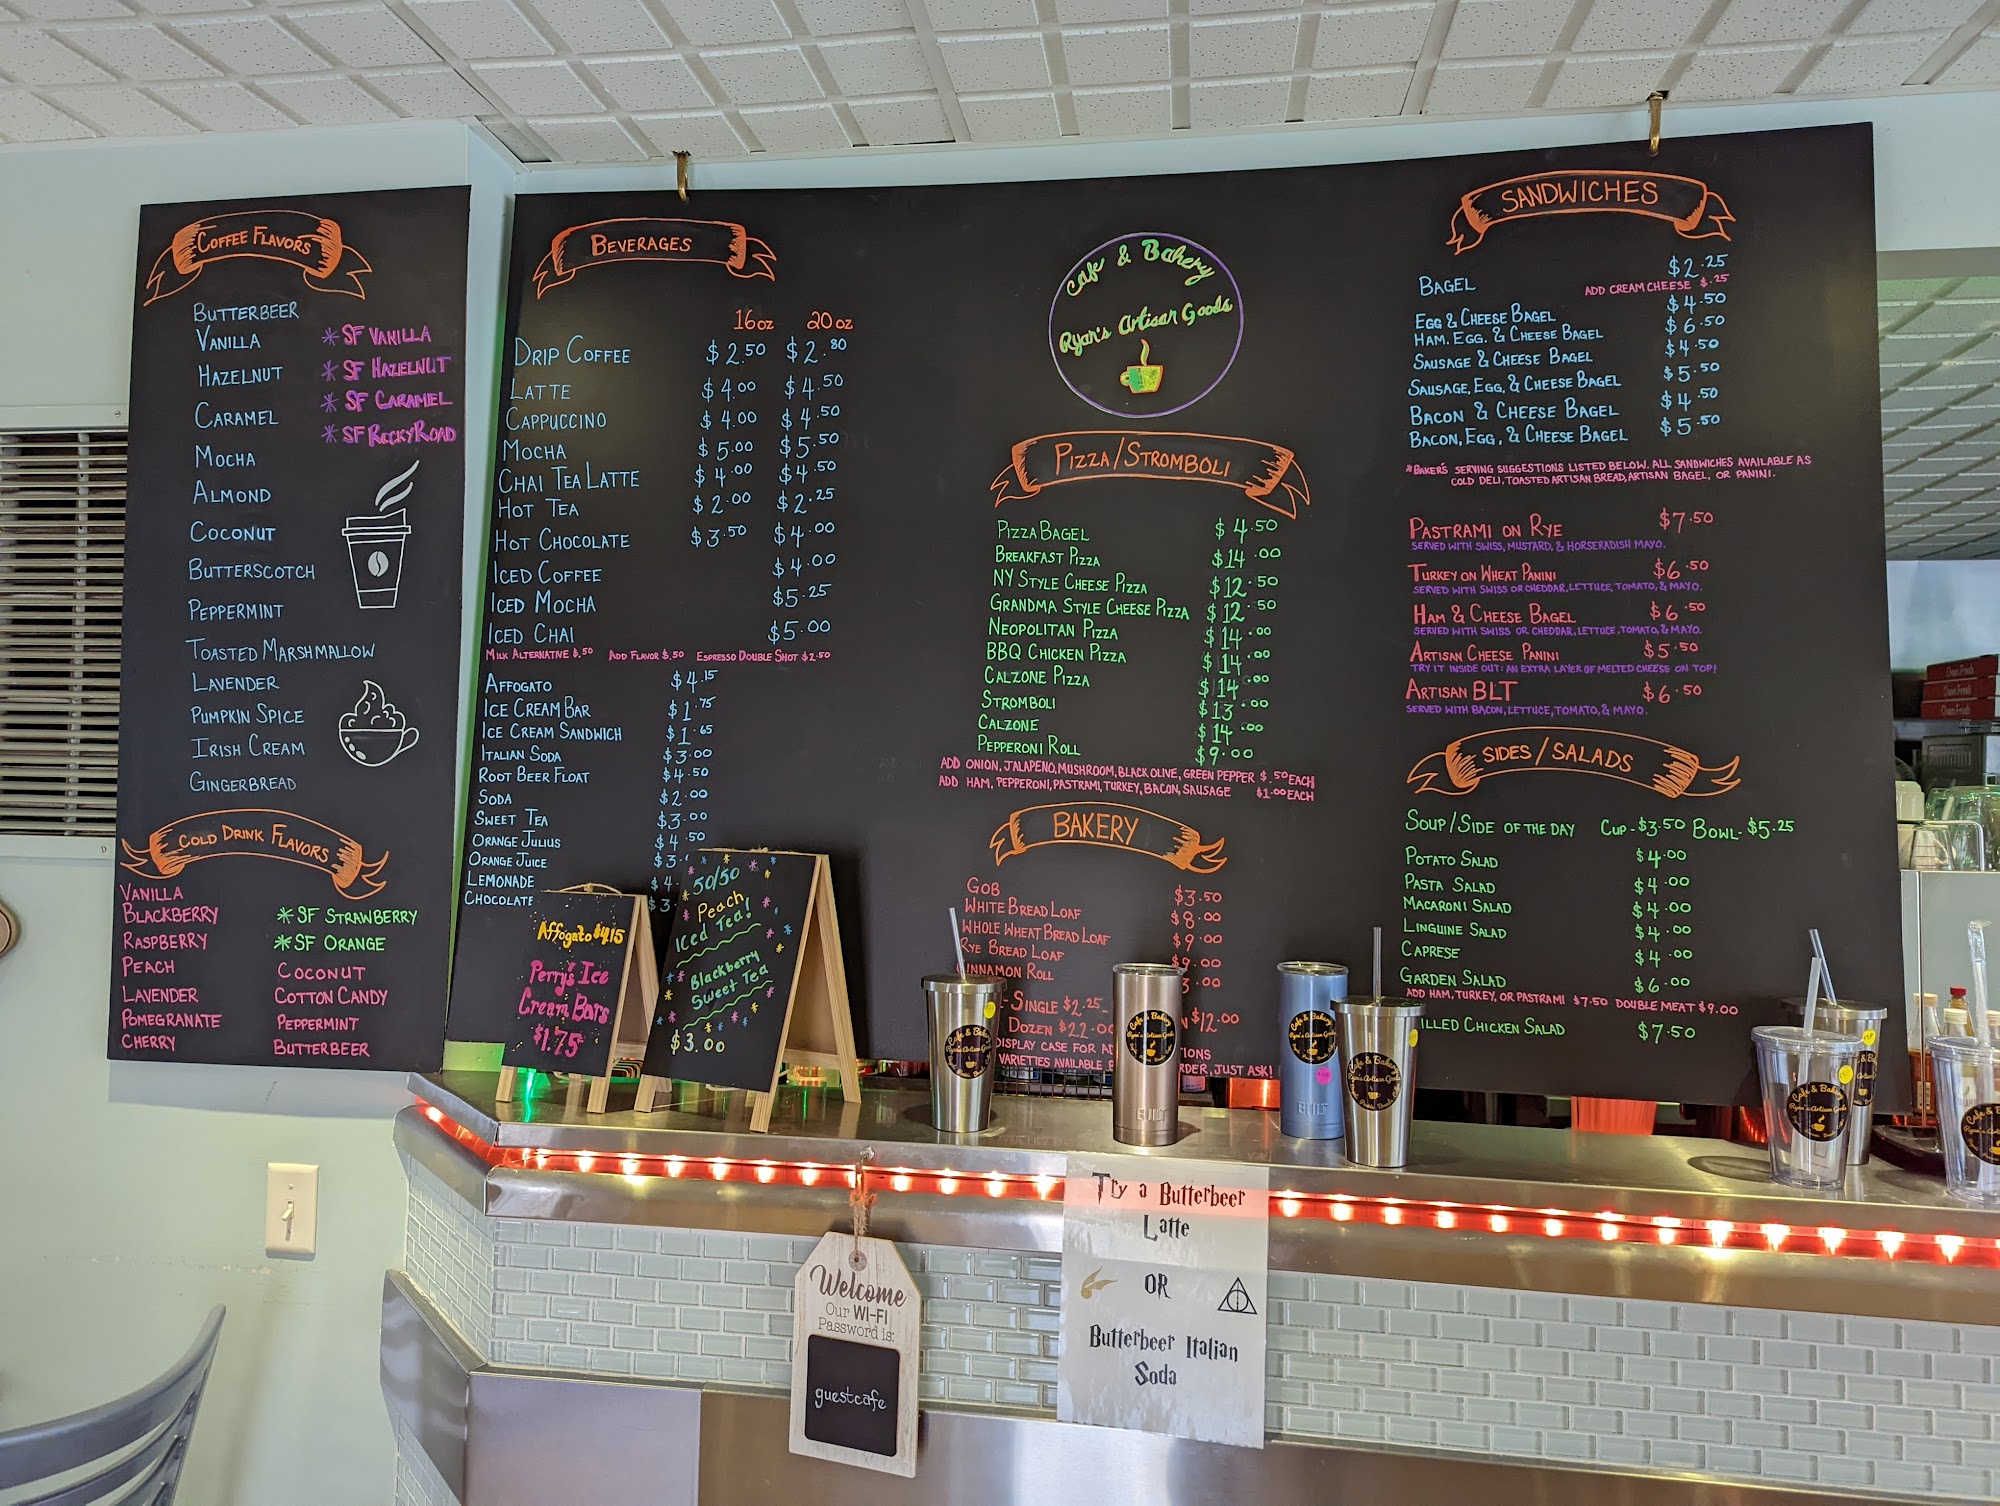 COFFEE FLAVORS
BUTTERBEER
VANILLA
HAZELNUT
CARAMEL
MOCHA
ALMOND
COCONUT
BUTTERSCOTCH
PEPPERMINT
TOASTED MARSHMALLOW
LAVENDER
PUMPKIN SPICE
IRISH CREAM
GINGERBREAD
* SF VANILLA
* SF HAZELNUT
* SF CARAMEL
* SF ROCKY ROAD
COLD DRINK FLAVORS
VANILLA
BLACKBERRY
RASPBERRY
PEACH
LAVENDER
POMEGRANATE
CHERRY
* SF STRAWBERRY
* SF ORANGE
COCONUT
COTTON CANDY
PEPPERMINT
BUTTERBEER
BEVERAGES
16 oz 20 oz
DRIP COFFEE $2.50 $2.80
LATTE $4.00 $4.50
CAPPUCCINO $4.00 $4.50
MOCHA $5.00 $5.50
CHAI TEA LATTE $4.00 $4.50
HOT TEA $2.00 $2.25
HOT CHOCOLATE $3.50 $4.00
ICED COFFEE $4.00
ICED MOCHA $5.25
ICED CHAI $5.00
MILK ALTERNATIVE $.50 ADD FLAVOR $.50 ESPRESSO DOUBLE SHOT $2.50
AFFOGATO $4.15
ICE CREAM BAR $1.75
ICE CREAM SANDWICH $1.65
ITALIAN SODA $3.00
ROOT BEER FLOAT $4.50
SODA $2.00
SWEET TEA $3.00
ORANGE JULIUS $4.50
ORANGE JUICE $3.
LEMONADE $4.
CHOCOLATE $3
Affogato $4.15
Perry's Ice
Cream Bars
$1.75
50/50
Peach
Iced Tea!
Blackberry
Sweet Tea
$3.00
Cafe & Bakery
Ryan's Artisan Goods
PIZZA/STROMBOLI
PIZZA BAGEL $4.50
BREAKFAST PIZZA $14.00
NY STYLE CHEESE PIZZA $12.50
GRANDMA STYLE CHEESE PIZZA $12.50
NEOPOLITAN PIZZA $14.00
BBQ CHICKEN PIZZA $14.00
CALZONE PIZZA $14.00
STROMBOLI $13.00
CALZONE $14.00
PEPPERONI ROLL $9.00
ADD ONION, JALAPENO, MUSHROOM, BLACK OLIVE, GREEN PEPPER $.50 EACH
ADD HAM, PEPPERONI, PASTRAMI, TURKEY, BACON, SAUSAGE $1.00 EACH
BAKERY
GOB $3.50
WHITE BREAD LOAF $8.00
WHOLE WHEAT BREAD LOAF $9.00
RYE BREAD LOAF $9.00
CINNAMON ROLL 3.00
- SINGLE $2.25
DOZEN $22.00 N $12.00
DISPLAY CASE FOR AD TIONS
VARIETIES AVAILABLE RDER, JUST ASK!
SANDWICHES
BAGEL $2.25
ADD CREAM CHEESE $.25
EGG & CHEESE BAGEL $4.50
HAM, EGG, & CHEESE BAGEL $6.50
SAUSAGE & CHEESE BAGEL $4.50
SAUSAGE, EGG, & CHEESE BAGEL $5.50
BACON & CHEESE BAGEL $4.50
BACON, EGG, & CHEESE BAGEL $5.50
*BAKER'S SERVING SUGGESTIONS LISTED BELOW. ALL SANDWICHES AVAILABLE AS
COLD DELI, TOASTED ARTISAN BREAD, ARTISAN BAGEL, OR PANINI.
PASTRAMI ON RYE $7.50
SERVED WITH SWISS, MUSTARD, & HORSERADISH MAYO.
TURKEY ON WHEAT PANINI $6.50
SERVED WITH SWISS OR CHEDDAR, LETTUCE, TOMATO, & MAYO.
HAM & CHEESE BAGEL $6.50
SERVED WITH SWISS OR CHEDDAR, LETTUCE, TOMATO, & MAYO.
ARTISAN CHEESE PANINI $5.50
TRY IT INSIDE OUT: AN EXTRA LAYER OF MELTED CHEESE ON TOP!
ARTISAN BLT $6.50
SERVED WITH BACON, LETTUCE, TOMATO, & MAYO.
SIDES/SALADS
SOUP/SIDE OF THE DAY CUP-$3.50 BOWL-$5.25
POTATO SALAD $4.00
PASTA SALAD $4.00
MACARONI SALAD $4.00
LINGUINE SALAD $4.00
CAPRESE $4.00
GARDEN SALAD $6.00
ADD HAM, TURKEY, OR PASTRAMI $7.50 DOUBLE MEAT $9.00
ILLED CHICKEN SALAD $7.50
Cafe & Bakery
Ryan's Artisan Goods
BUILT
Cafe & Bakery
Ryan's Artisan Goods
BUILT
Welcome
Our WI-FI
Password is:
guestcafe
Try a Butterbeer
Latte
OR
Butterbeer Italian
Soda